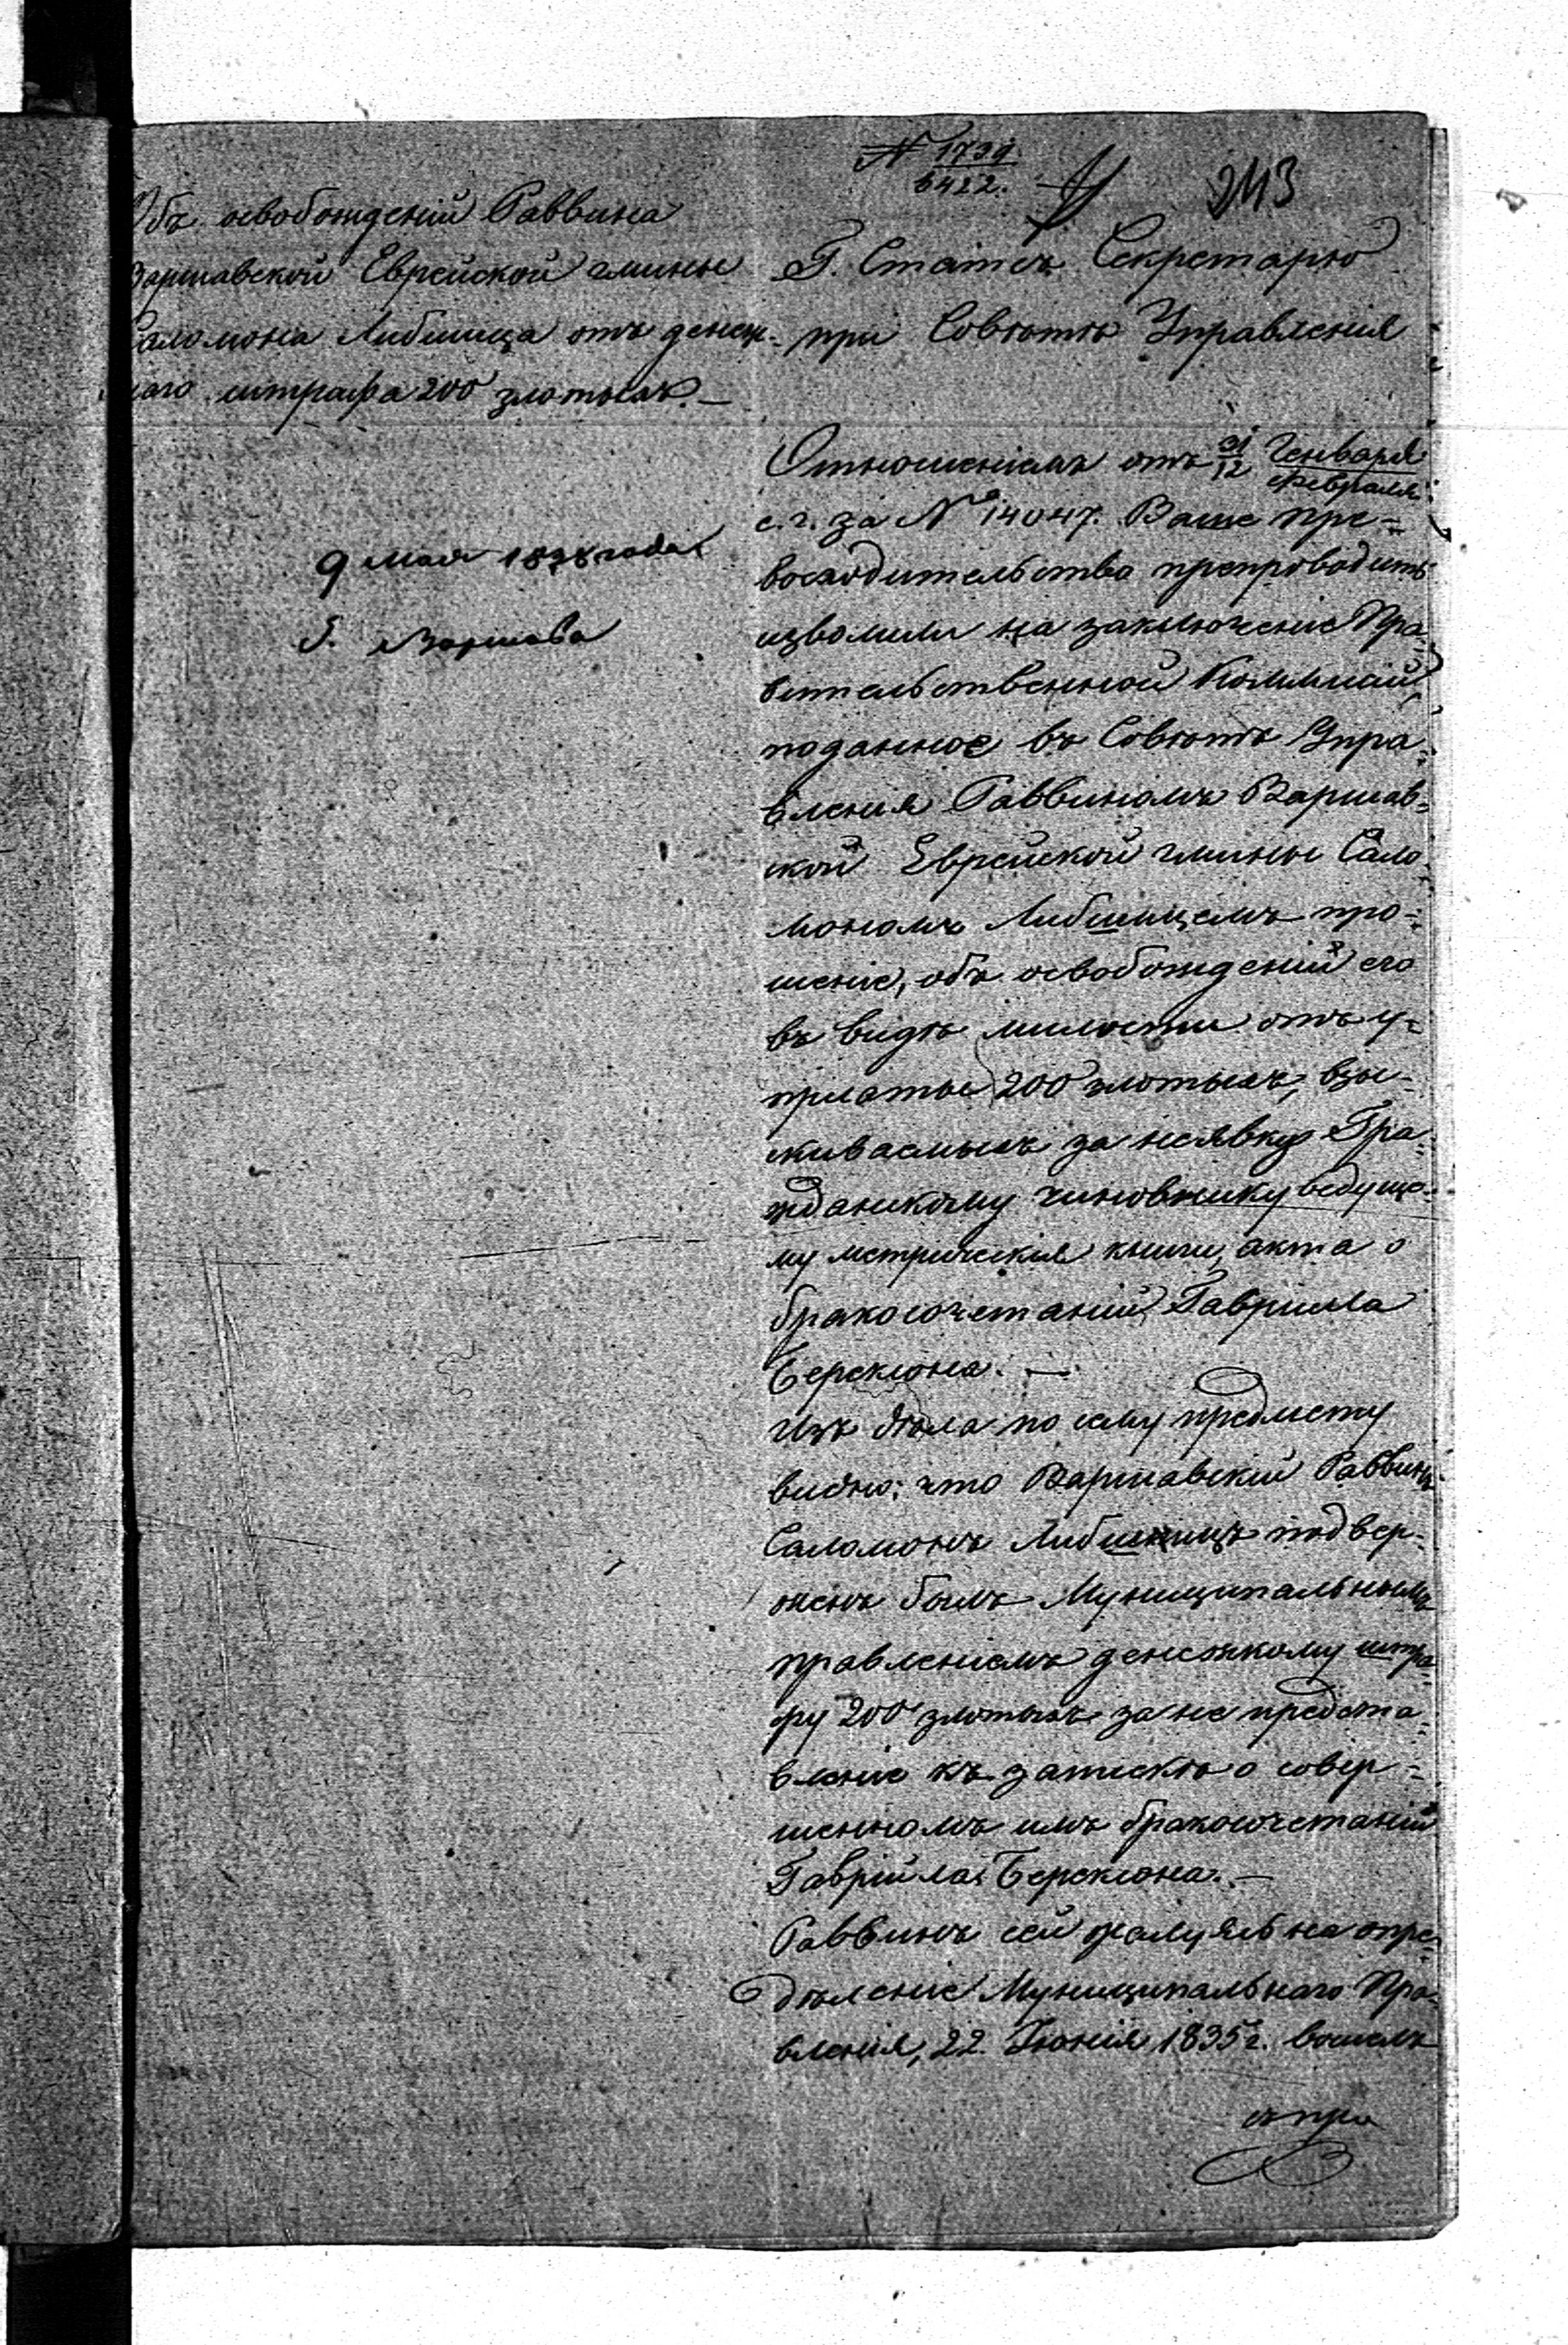 № 1739
6422.
243
Объ освобожденіи Раввина
Варшавской Еврейской гмины
Саломона Либшица отъ денеж-
наго штрафа 200 злотыхъ.—
9 мая 1838 года
г. Варшава
Г. Статсъ Секретарю
при Совѣтѣ Управленія
Отношеніемъ отъ 31/12 Генваря/Февраля
с. г. за № 14047. Ваше Пре-
восходительство препроводить
изволили на заключеніе Пра-
вительственной Коммисіи,
поданное въ Совѣтъ Упра-
вленія Раввиномъ Варшав-
ской Еврейской гмины Сало-
мономъ Либшицемъ про-
шеніе, объ освобожденіи его
въ видѣ милости отъ у-
приаты 200 злотыхъ, взы-
скиваемыхъ за неявку Гра-
жданскому чиновнику ведуще-
му метрическія книги, акта о
бракосочетаніи Гавріила
Берксона. —
Изъ дѣла по сему предмету
видно: что Варшавскій Раввинъ
Саломонъ Либшицъ подвер-
женъ былъ Муниципальнымъ
правленіемъ денежному штра-
фу 200 злотыхъ за не предста-
вленіе къ запискѣ о совер-
шенномъ имъ бракосочетаніи
Гавріила Берксона.—
Раввинъ сей жалуясь на опре-
дѣленіе Муниципальнаго Пра-
вленія, 22. Іюнія 1835 г. вошелъ
съ про